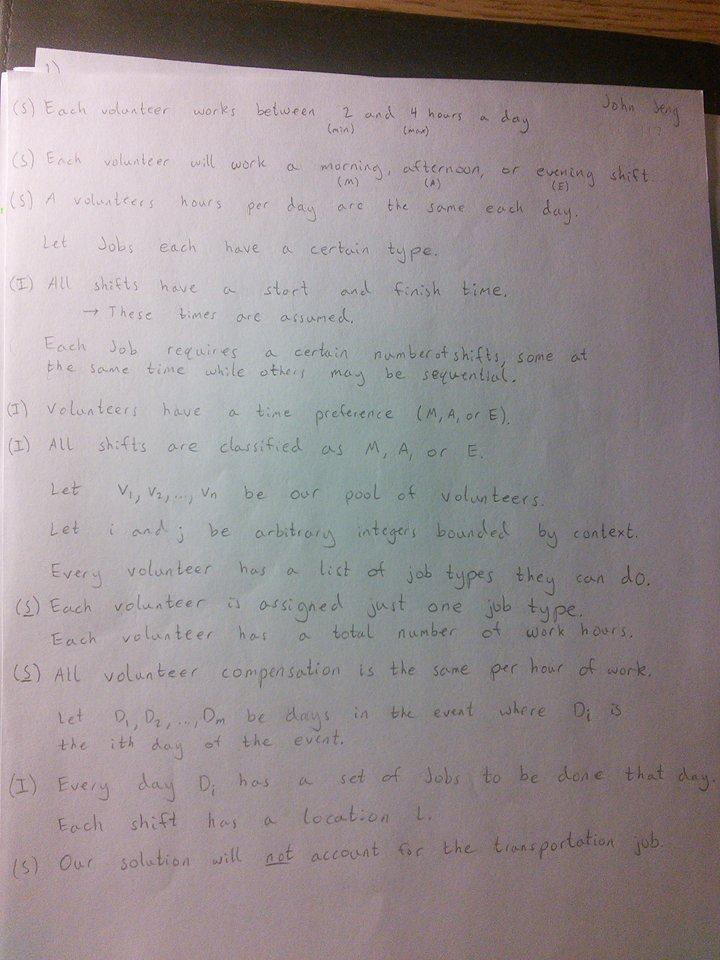 1)
John Jeng
(S) Each volunteer works between 2 and 4 hours a day
(min) (max)
(S) Each volunteer will work a morning, afternoon, or evening shift.
(M) (A) (E)
(S) A volunteers hours per day are the same each day.
Let Jobs each have a certain type.
(I) All shifts have a start and finish time.
→ These times are assumed.
Each Job requires a certain number of shifts, some at
the same time while others may be sequential.
(I) Volunteers have a time preference (M, A, or E).
(I) All shifts are classified as M, A, or E.
Let V1, V2, ..., Vn be our pool of volunteers.
Let i and j be arbitrary integers bounded by context.
Every volunteer has a list of job types they can do.
(S) Each volunteer is assigned just one job type.
Each volunteer has a total number of work hours.
(S) All volunteer compensation is the same per hour of work.
Let D1, D2, ..., Dm be days in the event where Di is
the ith day of the event.
(I) Every day Di has a set of Jobs to be done that day.
Each shift has a location L.
(S) Our solution will not account for the transportation job.